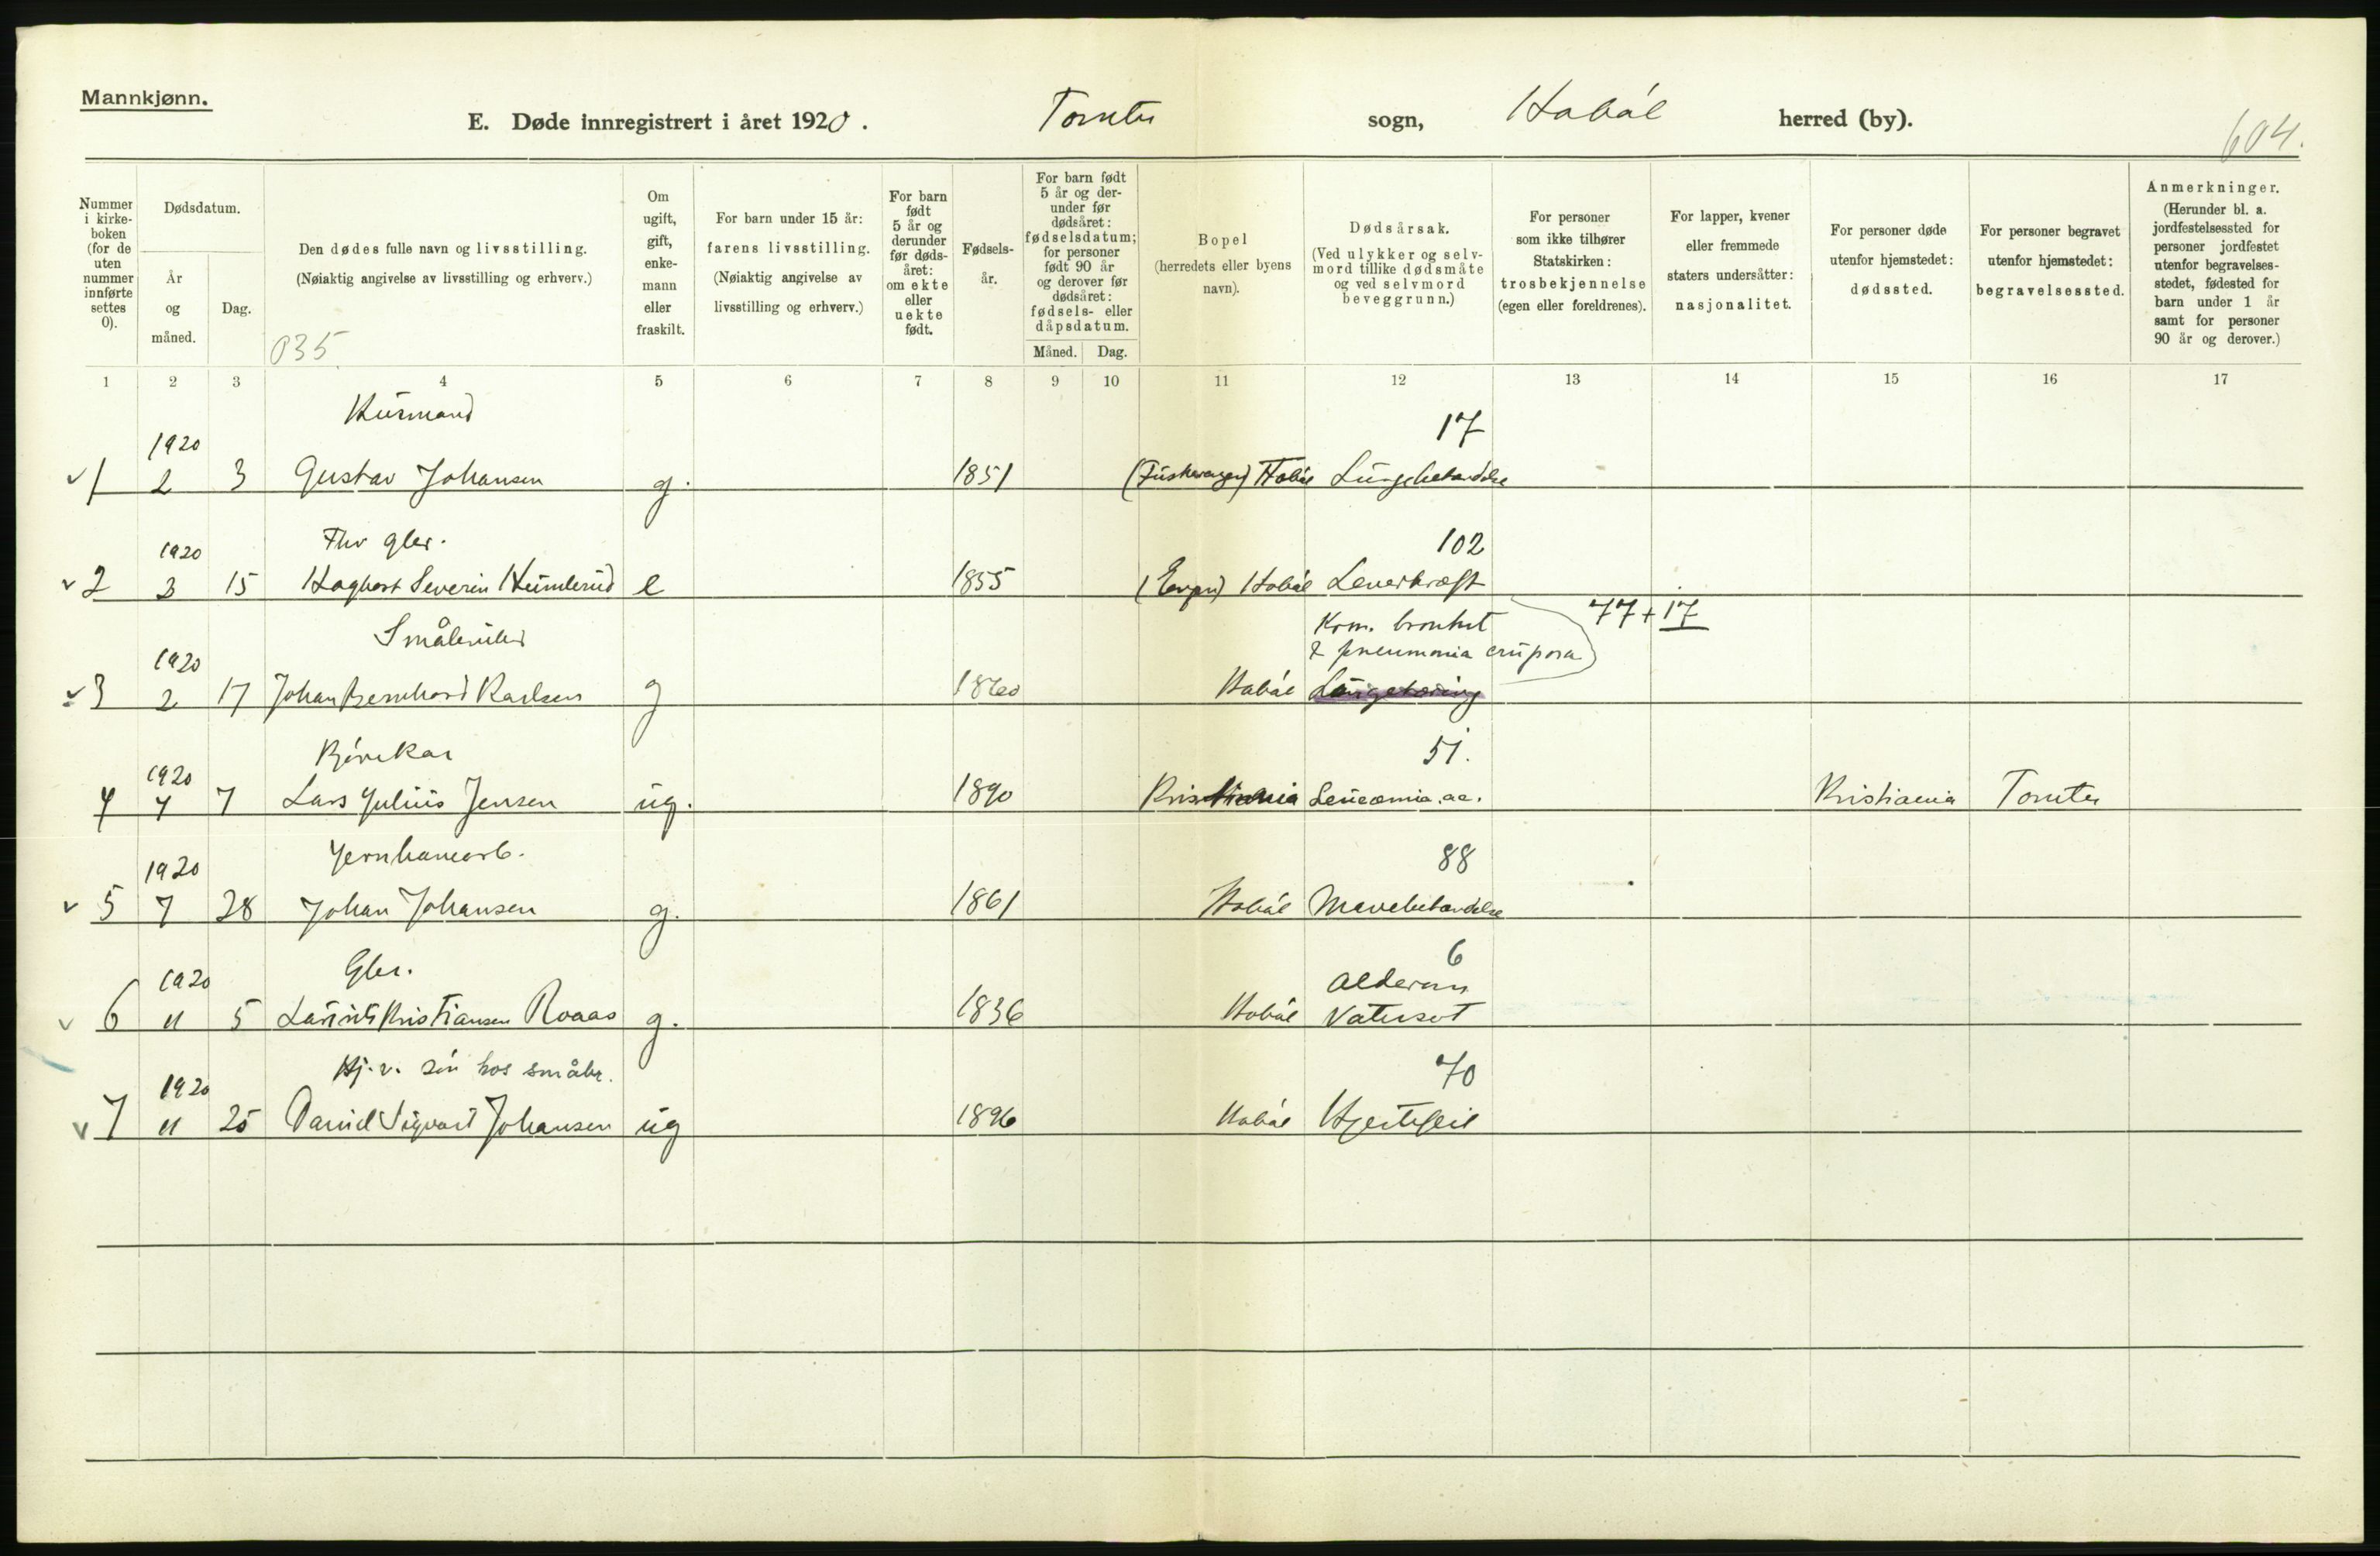 Mannkjønn.
E. Døde innregistrert i året 1920. Tomter sogn, Hobøl herred (by).
604.
Nummer i kirke-boken (for de uten nummer innførte settes 0).
Dødsdatum.
År og måned.
Dag.
Den dødes fulle navn og livsstilling.
(Nøiaktig angivelse av livsstilling og erhverv.)
035
Om ugift, gift, enke-mann eller fraskilt.
For barn under 15 år: farens livsstilling. (Nøiaktig angivelse av livsstilling og erhverv.)
For barn født 5 år og derunder før døds-året: om ekte eller uekte født.
Fødsels-år.
For barn født 5 år og der-under før dødsåret: fødselsdatum; for personer født 90 år og derover før dødsåret: fødsels- eller dåpsdatum.
Måned. Dag.
Bopel (herredets eller byens navn).
Dødsårsak. (Ved ulykker og selv-mord tillike dødsmåte og ved selvmord beveggrunn.)
For personer som ikke tilhører Statskirken: trosbekjennelse (egen eller foreldrenes).
For lapper, kvener eller fremmede staters undersåtter: nasjonalitet.
For personer døde utenfor hjemstedet: dødssted.
For personer begravet utenfor hjemstedet: begravelsessted.
Anmerkninger. (Herunder bl. a. jordfestelsessted for personer jordfestet utenfor begravelses-stedet, fødested for barn under 1 år samt for personer 90 år og derover.)
1 2 3 4 5 6 7 8 9 10 11 12 13 14 15 16 17
Husmand
1920 17
v 1 2 3 Gustav Johansen g. 1851 Hobøl Lungebetændelse
Fhv gbr.
1920 102
v 2 3 15 Hagbart Severin Humlerud e 1855 Hobøl Leverkræft
Kron. bronkit 77 + 17
& pneumonia cruposa
1920
v 3 2 17 Johan Bernhard Karlsen g 1860 Hobøl Lungetæring
Kjørekar
1920 51.
4 4 7 Lars Julius Jensen ug. 1890 Kristiania Leucæmia. ac. Kristiania Tomter
Jernbanearb.
1920 88
v 5 7 28 Johan Johansen g. 1861 Hobøl Mavebetændelse
Gbr. 6
1920 Alderom
v 6 11 5 Laurits Kristiansen Roaas g. 1836 Hobøl Vatersot
Hj. v. søn hos småbr.
1920 70
v 7 11 25 Daniel Sigvart Johansen ug 1896 Hobøl Hjertefeil